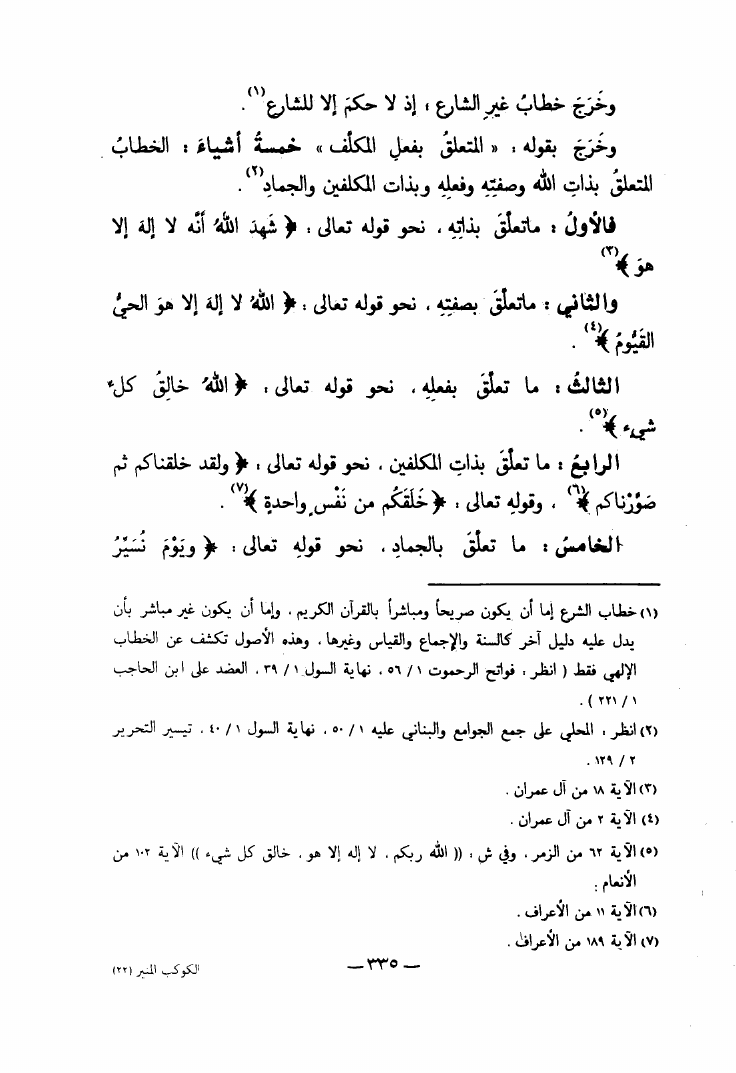 وخَرَجَ خطابُ غيرِ الشارع ؛ إذ لا حكمَ إلا للشارع(١).
وخَرَجَ بقوله : « المتعلقُ بفعلِ المكلَّف » خمسةُ أشياءَ : الخطابُ
المتعلقُ بذاتِ الله وصفتِهِ وفعلِهِ وبذات المكلفين والجمادِ(٢).
فالأولُ : ماتعلَّقَ بذاتِهِ ، نحو قوله تعالى : ﴿ شَهِدَ اللهُ أَنَّه لا إلهَ إلا
هوَ ﴾(٣)
والثاني : ماتعلَّقَ بصفتِهِ ، نحو قوله تعالى : ﴿ اللهُ لا إلهَ إلا هوَ الحيُّ
القَيُّومُ ﴾(٤) .
الثالثُ : ما تعلَّقَ بفعلِهِ ، نحو قوله تعالى : ﴿ اللهُ خالِقُ كلِّ
شيءٍ ﴾(٥) .
الرابعُ : ما تعلَّقَ بذاتِ المكلفين ، نحو قوله تعالى : ﴿ ولقد خلقناكم ثم
صَوَّرْناكم ﴾(٦) ، وقولِهِ تعالى : ﴿ خَلَقَكُم من نَفْسٍ واحدةٍ ﴾(٧) .
الخامسُ : ما تعلَّقَ بالجمادِ ، نحو قولِهِ تعالى : ﴿ ويَوْمَ نُسَيِّرُ
(١) خطاب الشرع إما أن يكون صريحاً ومباشراً بالقرآن الكريم ، وإما أن يكون غير مباشر بأن
يدل عليه دليل آخر كالسنة والإجماع والقياس وغيرها ، وهذه الأصول تكشف عن الخطاب
الإلهي فقط ( انظر : فواتح الرحموت ١ / ٥٦ ، نهاية السول ١ / ٣٩ ، العضد على ابن الحاجب
١ / ٢٢١ ) .
(٢) انظر : المحلي على جمع الجوامع والبناني عليه ١ / ٥٠ ، نهاية السول ١ / ٤٠ ، تيسير التحرير
٢ / ١٢٩ .
(٣) الآية ١٨ من آل عمران .
(٤) الآية ٢ من آل عمران .
(٥) الآية ٦٢ من الزمر ، وفي ش : (( الله ربكم ، لا إله إلا هو ، خالق كل شيء )) الآية ١٠٢ من
الأنعام .
(٦) الآية ١١ من الأعراف .
(٧) الآية ١٨٩ من الأعراف .
ـ ٣٣٥ ـ
الكوكب المنير (٢٢)